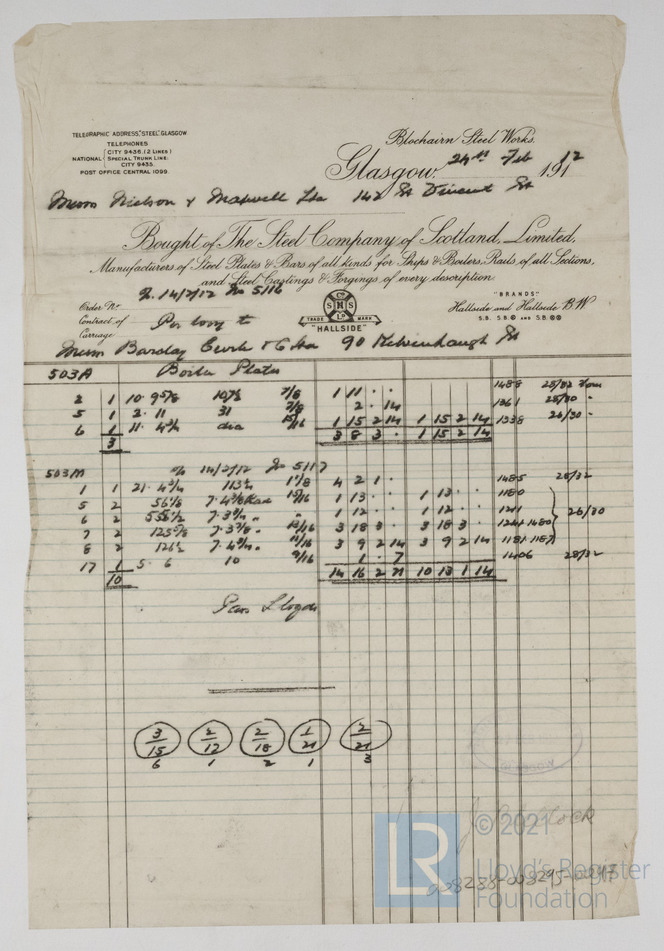 TELEGRAPHIC ADDRESS, "STEEL" GLASGOW
TELEPHONES
NATIONAL { CITY 9436. (2 LINES)
SPECIAL TRUNK LINE:
CITY 9435.
POST OFFICE CENTRAL 1099.
Blochairn Steel Works.
Glasgow, 24th Feb 1912
Messrs Nielson & Maxwell Ltd 142 St Vincent St
Bought of The Steel Company of Scotland, Limited,
Manufacturers of Steel Plates & Bars of all kinds for Ships & Boilers, Rails of all Sections,
and Steel Castings & Forgings of every description.
14/2/12 No 5116
Order No
Contract of
Carriage
Per lorry to
S Co M S Ld
TRADE MARK
"HALLSIDE"
"BRANDS"
Hallside and Hallside B.W
Messrs Barclay Curle & Co Ltd 90 Kelvinhaugh St
503A Boiler Plates
2 1 10. 9 5/8 10 7/8 7/8 1 11 . . 1488 28/32 Tons
5 1 2. 11 31 7/8 2 . 14 1361 28/30 "
6 1 11. 4 3/4 dia 15/16 1 15 2 14 1 15 2 14 1338 26/30 "
3 3 8 3 . 1 15 2 14
503M 14/2/12 No 5117
1 1 21. 4 3/4 113 1/2 1 1/8 4 2 1 . 1485 28/32
5 2 56 1/8 7. 4 3/8 13/16 1 13 . . 1 13 . . 1180
6 2 1 12 . . 1 12 . . 1241 26/30
7 2 125 5/8 7. 3 7/8 13/16 3 18 3 . 3 18 3 . 1241 1480
8 2 126 1/2 11/16 3 9 2 14 3 9 2 14 1181 1187
17 1 5. 6 10 9/16 1 . 7 1406 28/32
10 14 16 2 21 10 13 1 14
Pass Lloyds
3/15 2/12 2/18 1/21 2/21
6 1 2 1 3
LR © 2021
Lloyd's Register
Foundation
008288-008295-0047